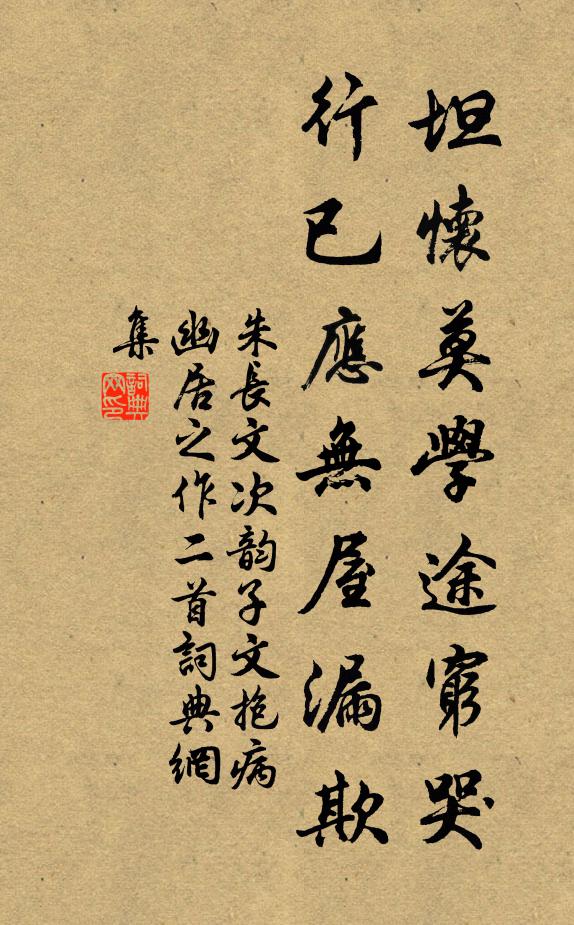 坦懷莫學途窮哭
行已應無屋漏欺
朱長文次韵子文抱病
幽居之作二首詞典網
集
詞典網印